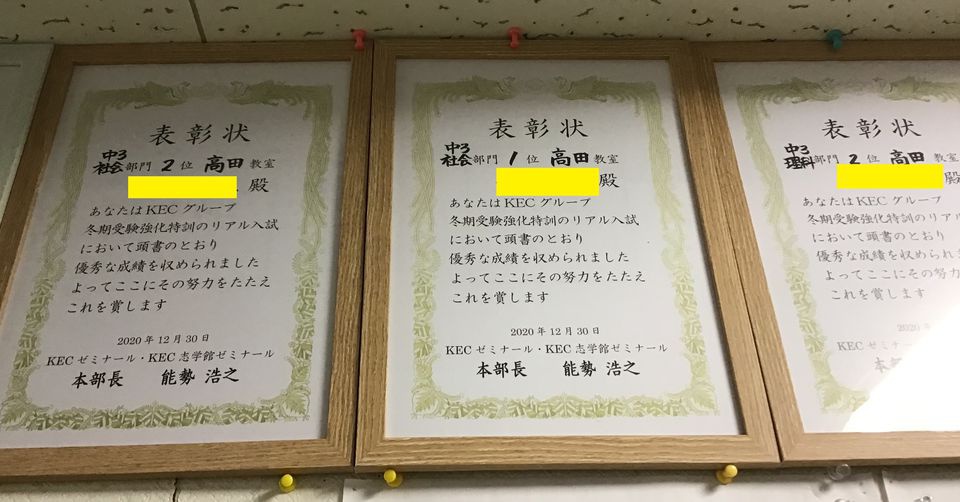 表彰状
中3
社会部門 2位 高田教室
殿
あなたはKECグループ
冬期受験強化特訓のリアル入試
において頭書のとおり
優秀な成績を収められました
よってここにその努力をたたえ
これを賞します
2020年12月30日
KECゼミナール・KEC志学館ゼミナール
本部長 能勢 浩之
表彰状
中3
社会部門 1位 高田教室
殿
あなたはKECグループ
冬期受験強化特訓のリアル入試
において頭書のとおり
優秀な成績を収められました
よってここにその努力をたたえ
これを賞します
2020年12月30日
KECゼミナール・KEC志学館ゼミナール
本部長 能勢 浩之
表彰状
中3
理科部門 2位 高田教室
殿
あなたはKECグループ
冬期受験強化特訓のリア
において頭書のとおり
優秀な成績を収められま
よってここにその努力を
これを賞します
2020年
KECゼミナ
本部長